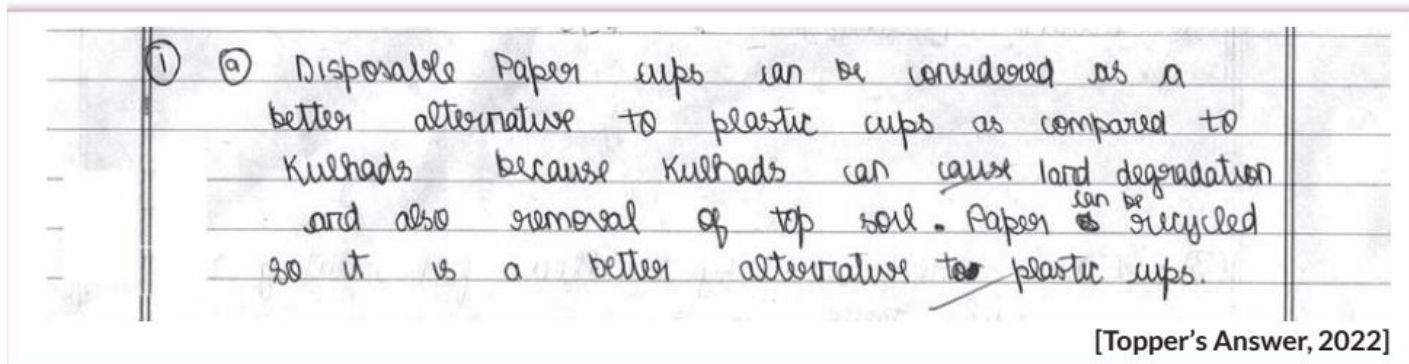 1 a Disposable Paper cups can be considered as a
better alternative to plastic cups as compared to
Kulhads because Kulhads can cause land degradation
can be
and also removal of top soil. Paper recycled
so it is a better alternative to plastic cups.
[Topper's Answer, 2022]